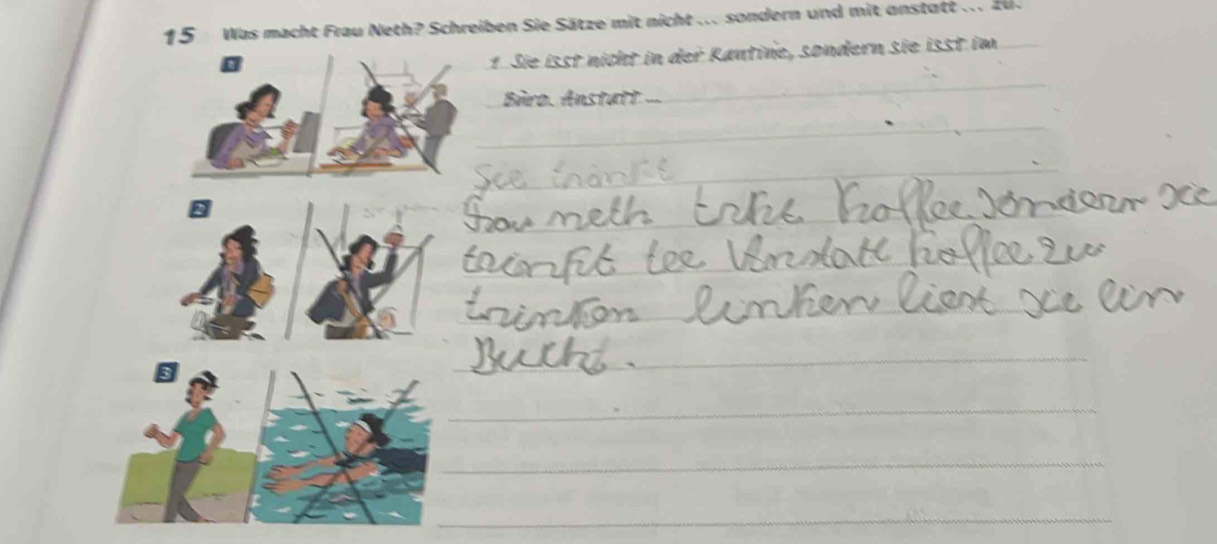 15 Was macht Frau Neth? Schreiben Sie Sätze mit nicht ... sondern und mit anstatt ... zu.
1
1 Sie isst nicht in der Kantine, sondern sie isst im
Büro. Anstatt ...
See trankt
2
frau neth trht koffee sondern sie
trinkt tee Anstatt koffee zu
trinken linken liest sie ein
Bucht.
3